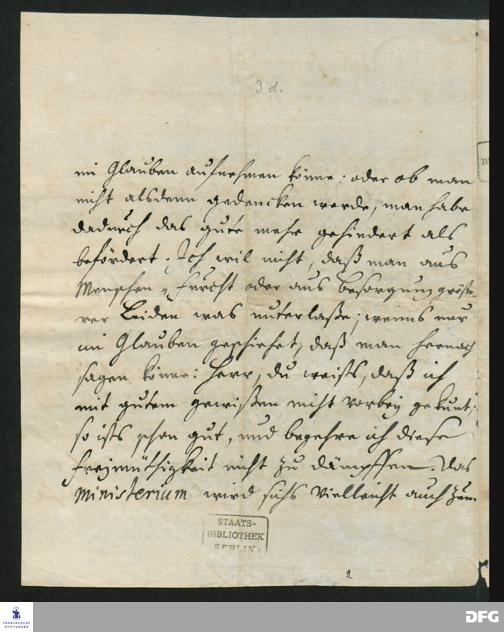 3 d.
im Glauben aufnehmen könne: oder ob man
nicht alsdenn gedencken werde, man habe
dadurch das gute mehr gehindert als
befördert. Ich wil nicht, daß man aus
Menschen furcht oder aus besorgung größe-
rer Leiden was unterlaße; wenns nur
im Glauben geschiehet, daß man hernach
sagen könne: Herr, du weists, daß ich
mit gutem gewißen nicht vorbey gekunt;
so ists schon gut, und begehre ich diese
freymüthigkeit nicht zu dämpffen. Das
Ministerium wird sichs vielleicht auch zum
STAATS-
BIBLIOTHEK
BERLIN
FRANCKESCHE
STIFTUNGEN
DFG